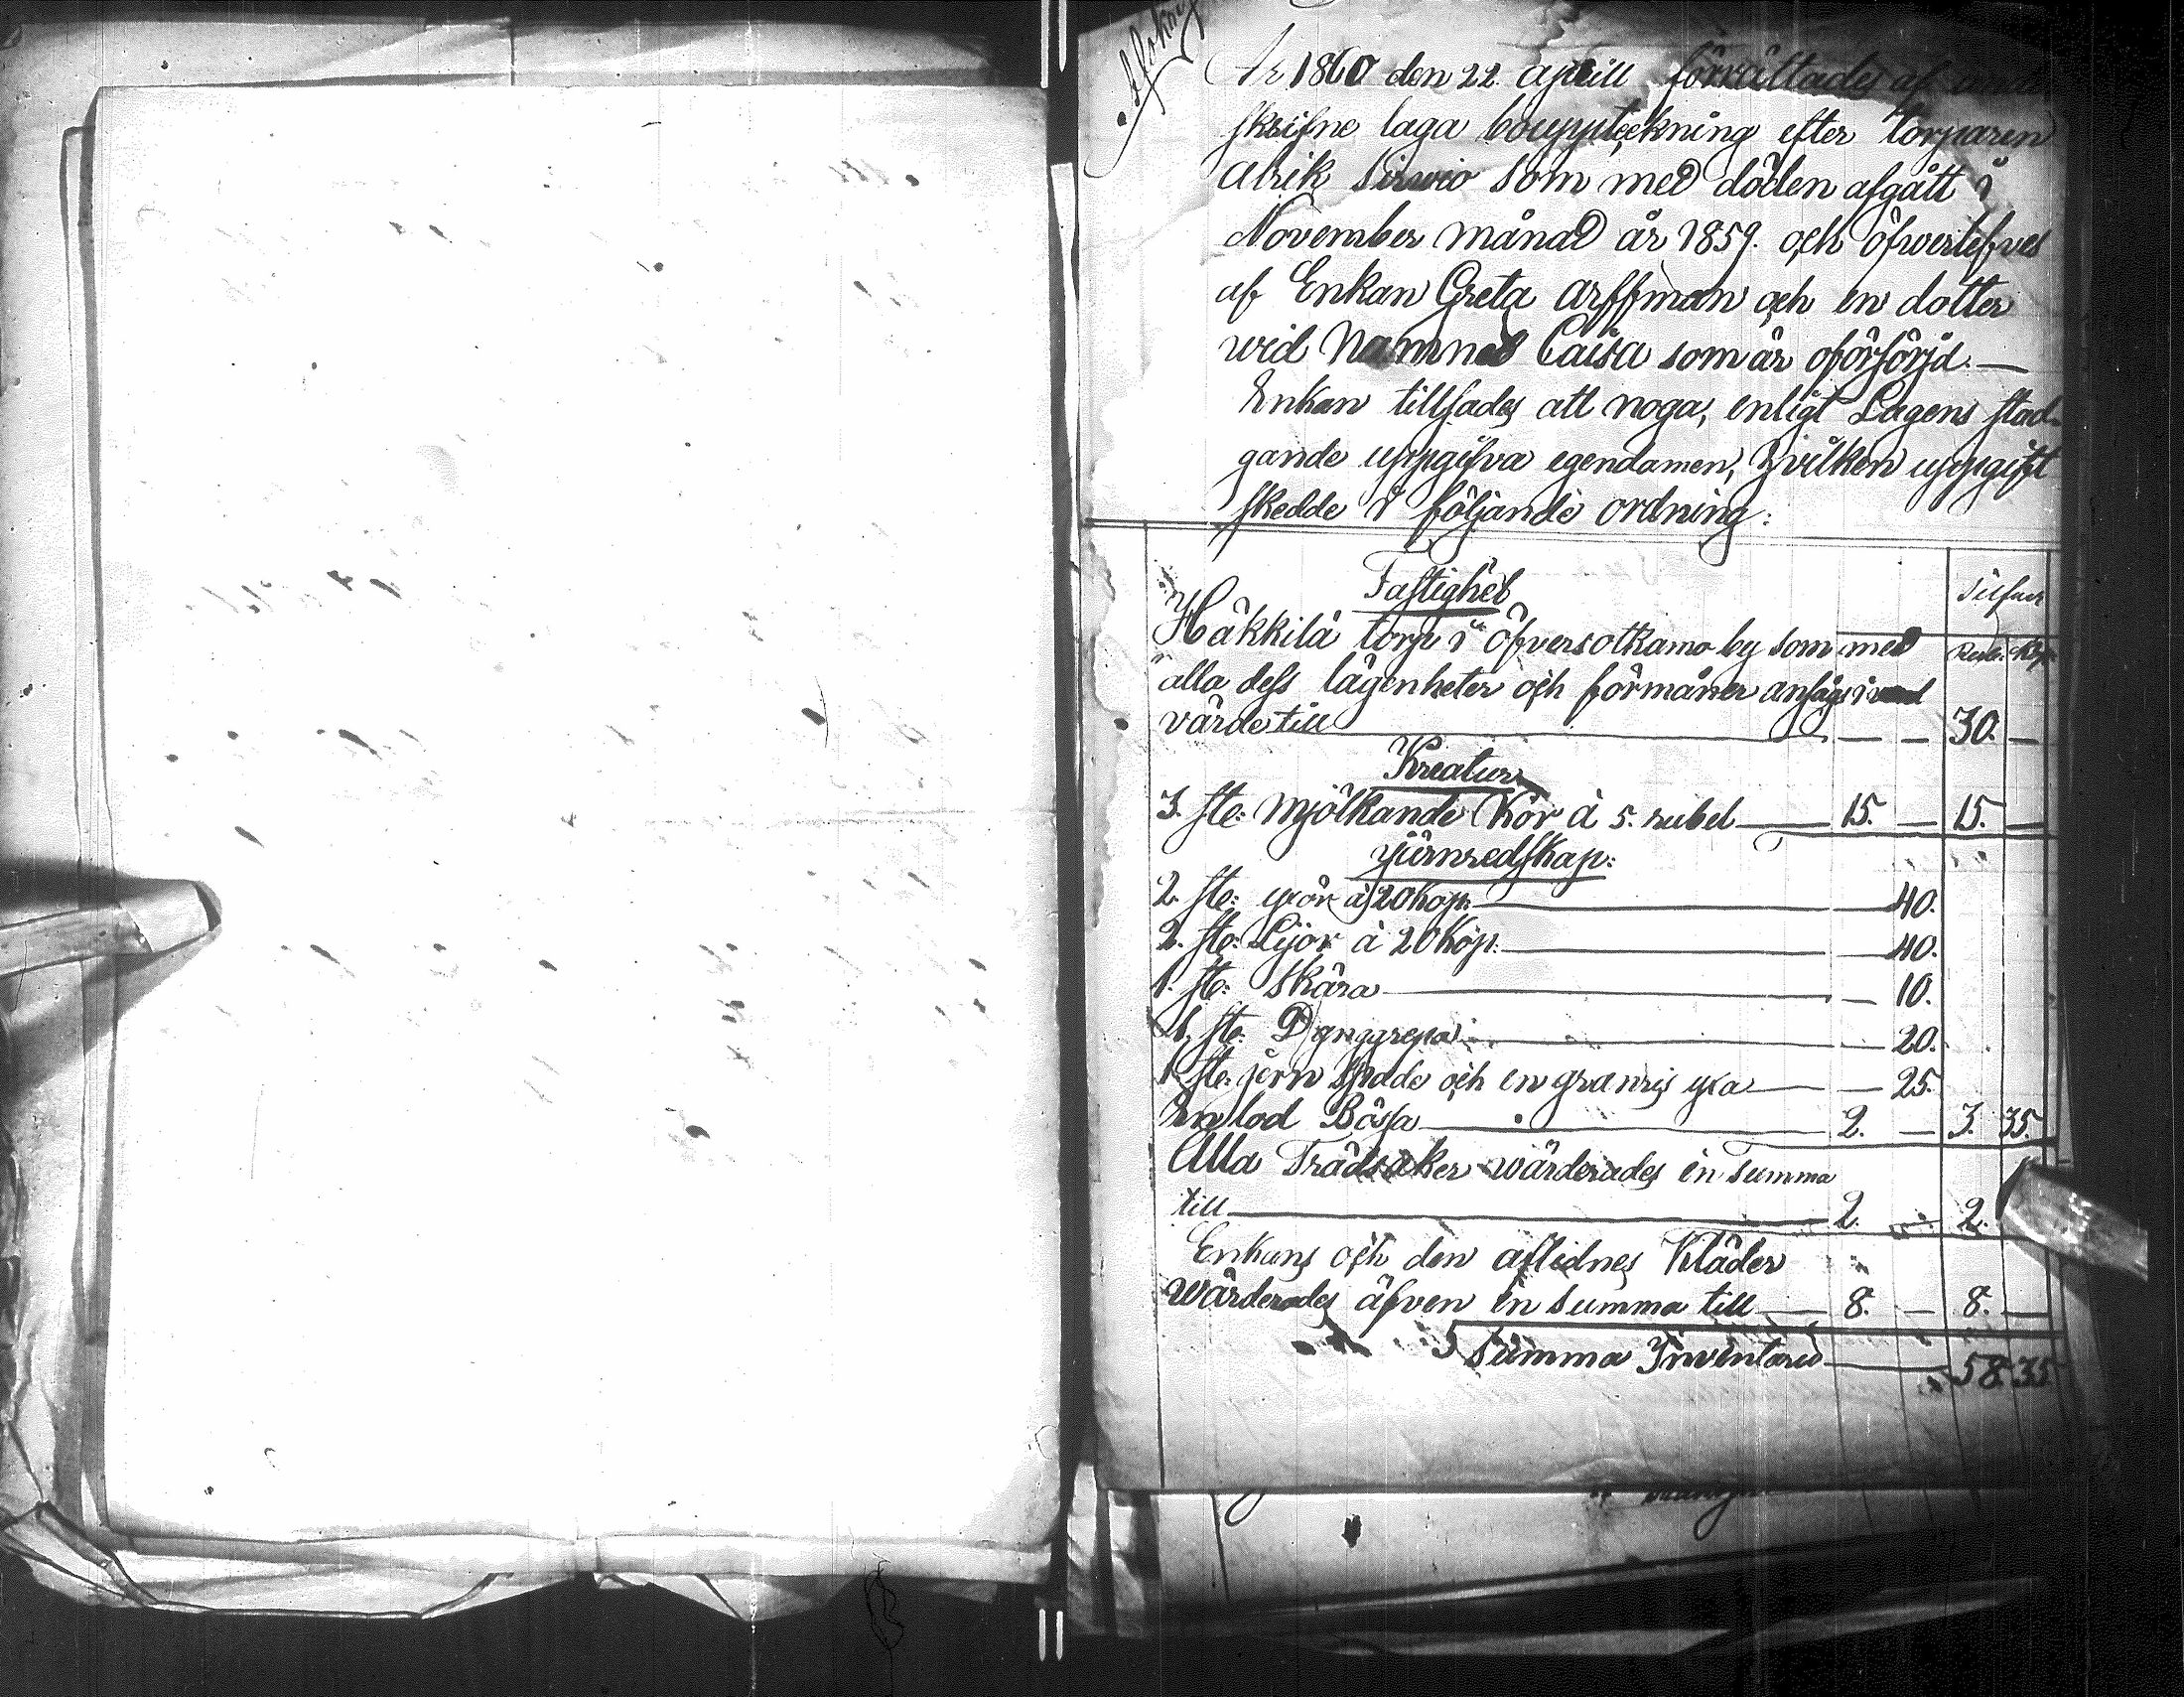 År 1860 den 22. aprill förrättades af
skrifne laga bouppteckning efter torparen
Alrik Sirwio som med döden afgått i
November månad år 1859. och öfwerlefves
af Enkan Greta Arffman och en dotter
wid Namned Caisa som är oförsörjd. —
Enkan tillsades att noga, enligt Lagens stad-
gande uppgifva egendamen, hvilken uppgift
skedde i följande ordning:
Fastighet
Silfver
Rub. Kop.
Häkkilä torp i Öfversotkamo by som med
alla dess lägenheter och förmåner ansågs i
värde till — — 30. —
Kreatur
3. st: Mjölkande Kor à 5. rubel — 15. — 15. —
Järnredskap:
2. st: yxor à 20 kop. — 40.
2. st: Lijor à 20 Kop. — 40.
1. st: Skära — 10.
1. st: Dynggrepa — 20.
1. st: jern Spade och en granris yxa — 25.
En lod Bössa — 2. — 3. 35.
Alla Trädsaker wärderades in summa
till — 2. — 2.
Enkans och den aflidnes Kläder
Wärderades äfven in summa till — 8. — 8. —
Summa Inventarid — 58. 35.